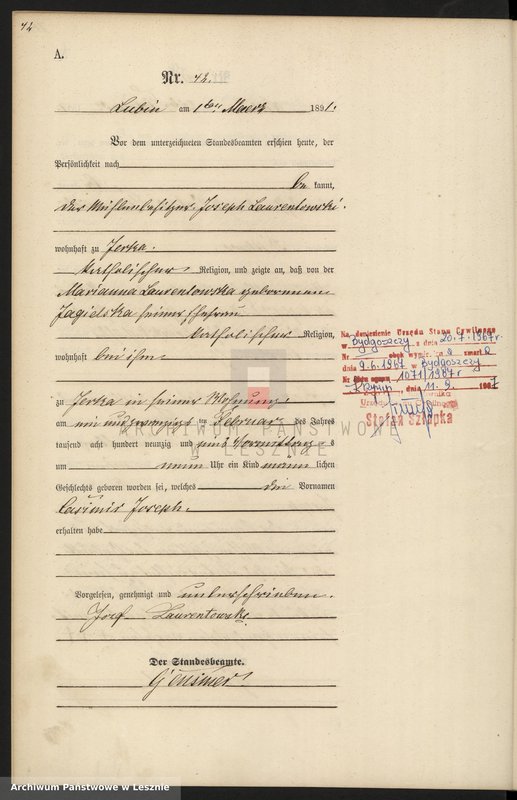 42
A.
Nr. 42.
Lubin am 1ten Maerz 1891.
Vor dem unterzeichneten Standesbeamten erschien heute, der
Persönlichkeit nach
be kannt,
der Mühlenbesitzer Joseph Laurentowski.
wohnhaft zu Jerka.
katholischer Religion, und zeigte an, daß von der
Marianna Laurentowska geborenen
Jagielska seiner Ehefrau
katholischer Religion,
wohnhaft bei ihm
zu Jerka in seiner Wohnung
am ein und zwanzigsten Februar des Jahres
tausend acht hundert neunzig und eins Vormittags
um neun Uhr ein Kind männ lichen
Geschlechts geboren worden sei, welches den Vornamen
Casimir Joseph.
erhalten habe
Vorgelesen, genehmigt und unterschrieben.
Josef Laurentowski
Der Standesbeamte.
Na doniesienie Urzędu Stanu Cywilnego
w Bydgoszczy z dnia 20.7.1967r.
dnia 9.6.1967 w Bydgoszczy
1071/1967r
dnia 11. 9. 1967
Stefan Szłapka
ARCHIWUM PAŃSTWOWE
W LESZNIE
Archiwum Państwowe w Lesznie